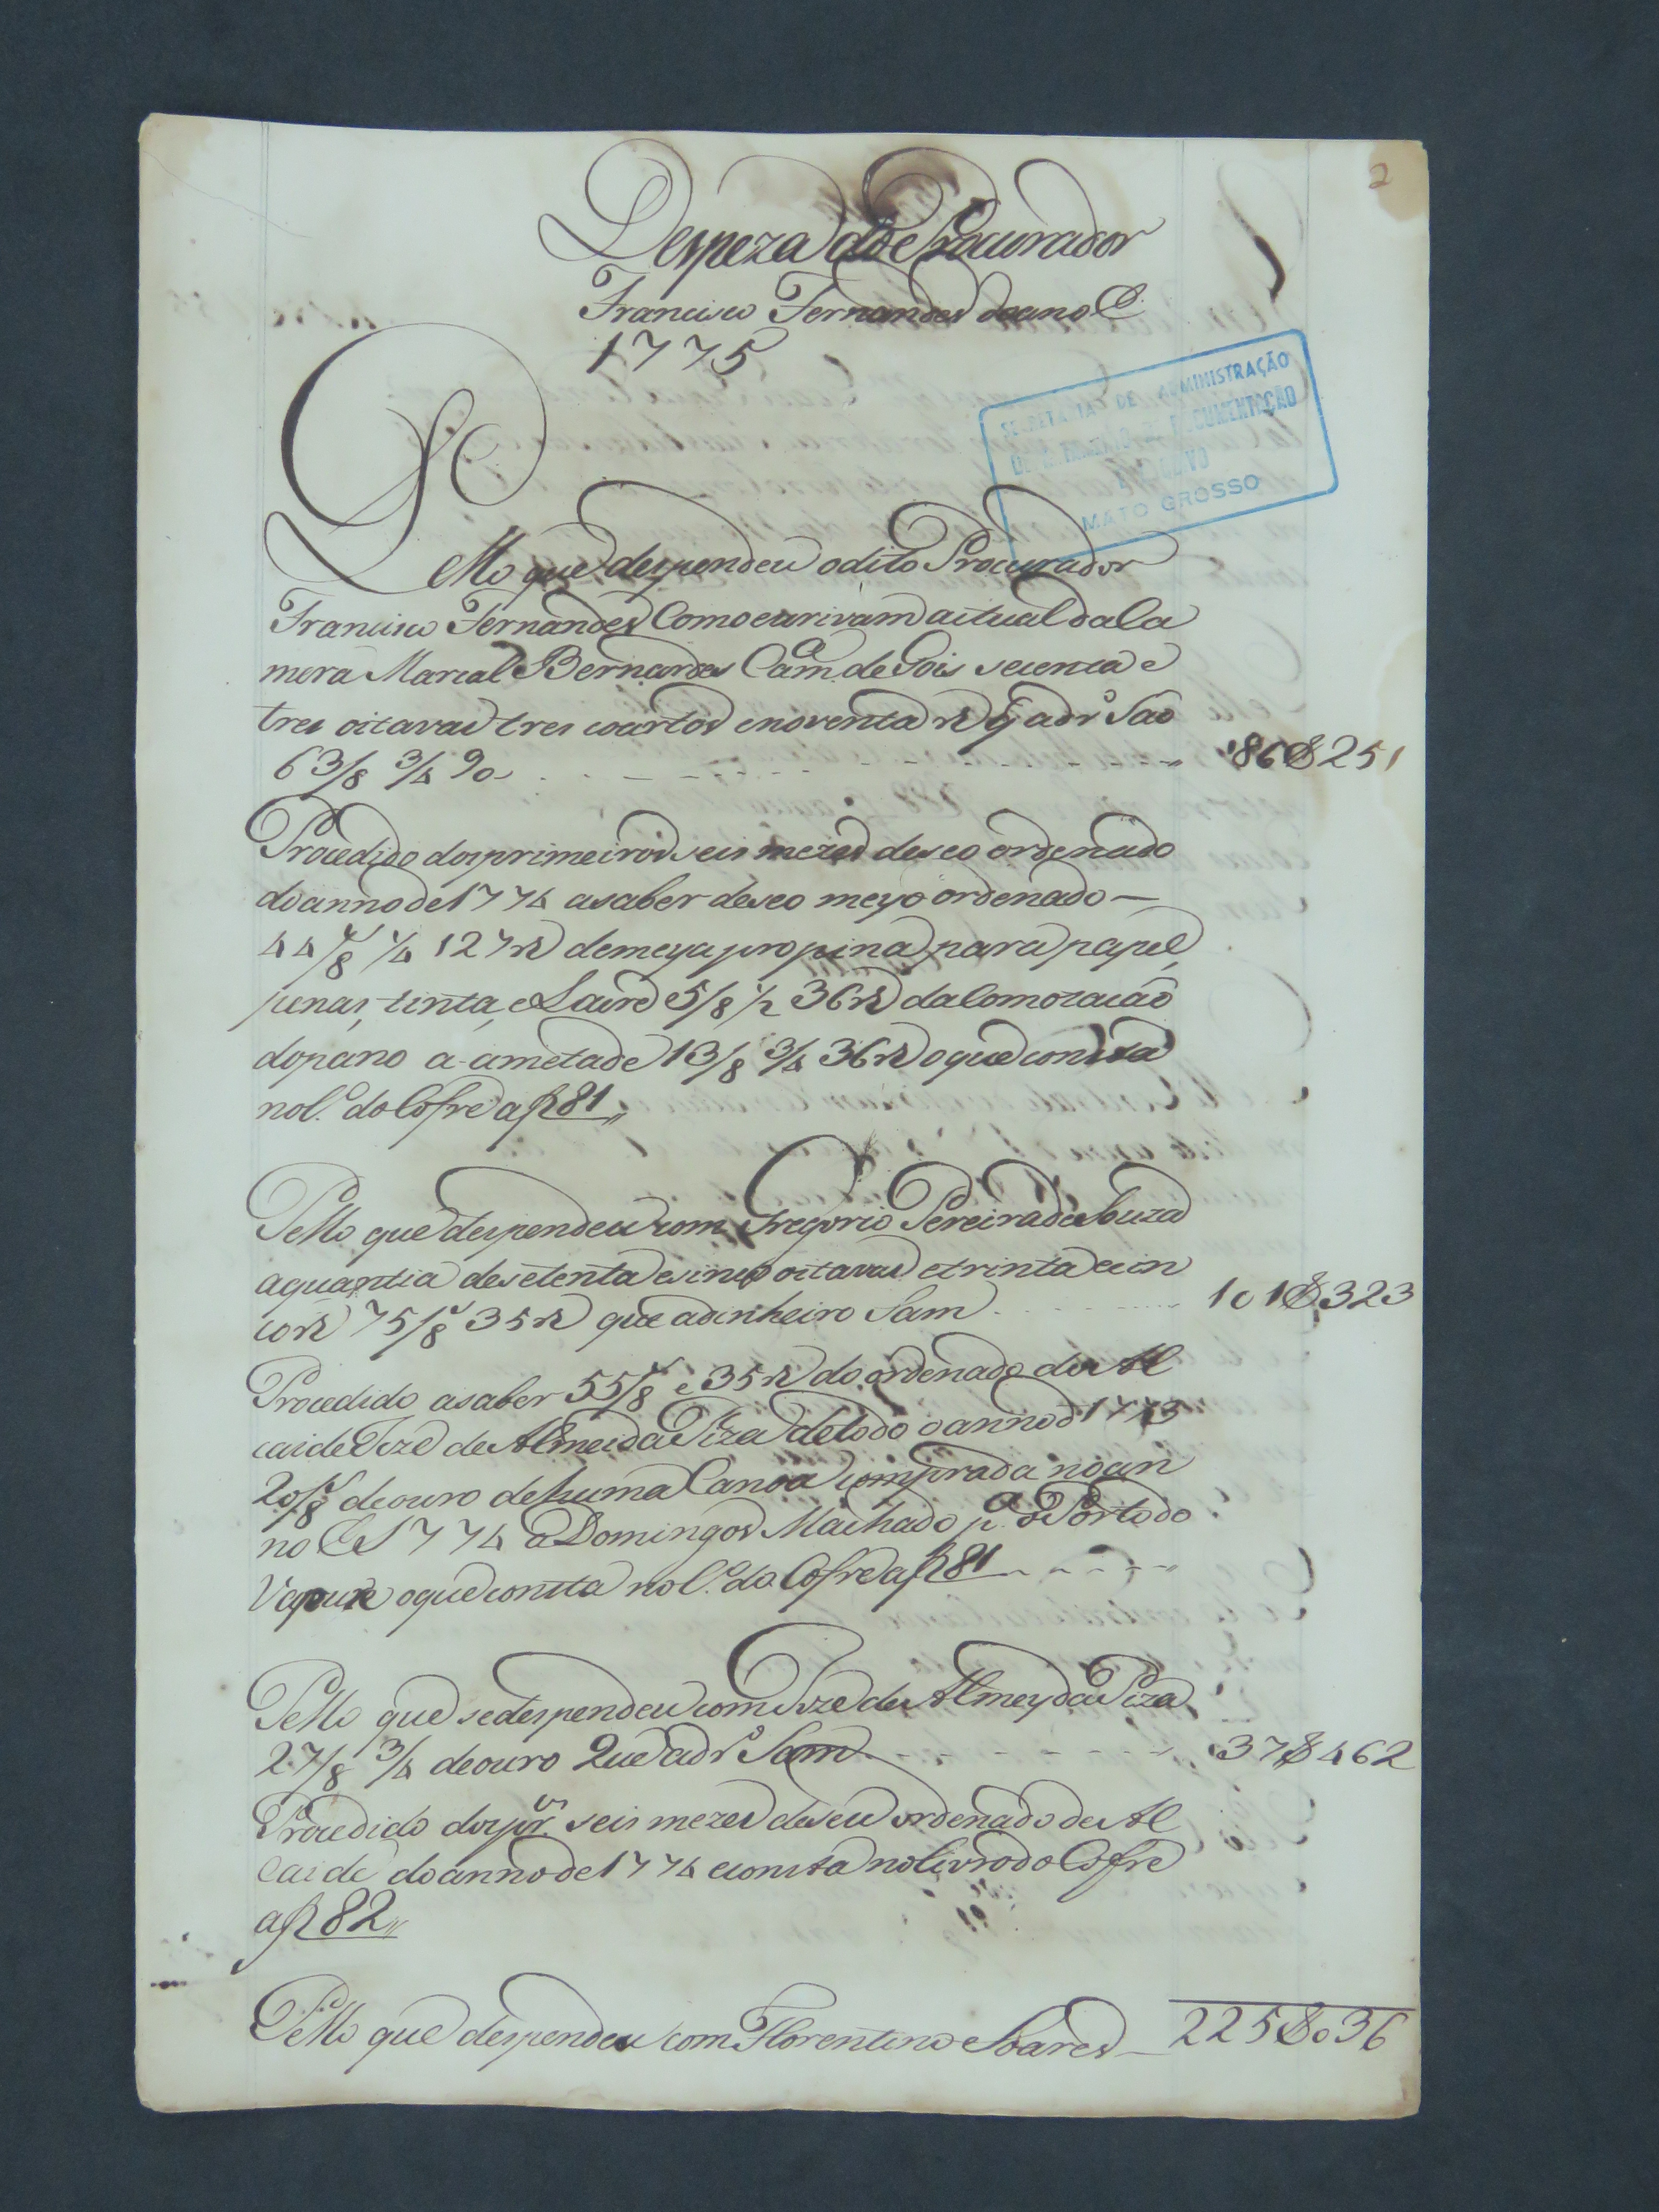 2
Despeza do Procurador
Francisco Fernandes do anno de
1775
SECRETARIA DE ADMINISTRAÇÃO
DEPARTAMENTO DE DOCUMENTAÇÃO
E ARQUIVO
MATO GROSSO
Pello que despendeu o dito Procurador
Francisco Fernandes Com o escrivam actual da Ca
mera Marcal Bernardes Cam.º de Gois secenta e
tres oitavas tres coartos e noventa rs q̃ a dr.º Saõ
63/8 3/4 90 86$251
Procedido dos primeiros seis mezes de seo ordenado
do anno de 1774 a saber de seo meyo ordenado —
44/8 1/4 127 rs de meya propina para papel,
penas, tinta, e Lacre 5/8 1/2 36 rs da Comozacaõ
do pano a ametade 13/8 3/4 36 rs o que consta
no l.º do Cofre a f 81
Pello que despendeu com Gregorio Pereira de Souza
a quantia de setenta e sinco oitavas e trinta e cin
co rs 75/8 35 rs que a dinheiro Sam 101$323
Procedido a saber 55/8 e 35 rs do ordenado de Al
caide Joze de Almeida Piza de todo o anno d 1773
20/8 de ouro de huma Canoa comprada no an
no de 1774 a Domingos Machado p.ª o Porto do
o que consta no l.º do Cofre a f 81
Pello que se despendeu com Joze de Almeyda Piza
27/8 3/4 de ouro Que a dr.º Sam 37$462
Procedido dos pr.os seis mezes de seu ordenado de Al
caide do anno de 1774 e consta no Livro do Cofre
a f 82
Pello que despendeu com Florentino Soares 225$036